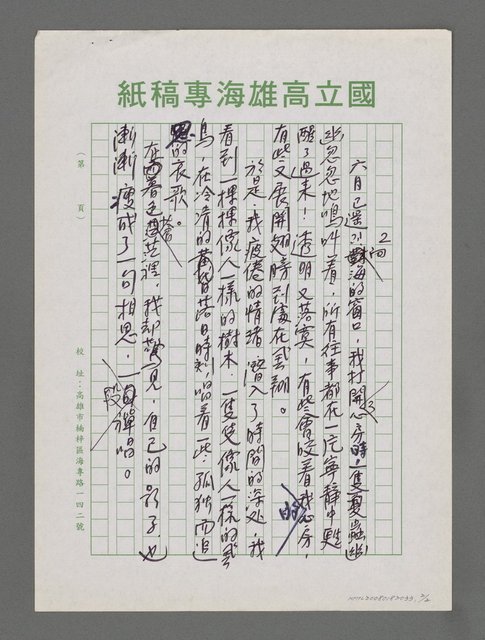 國立高雄海專專稿紙
六月已還向海的窗口，我打開心房時，一隻夏蟲幽
幽忽忽地鳴叫著，所有往事都在一片寧靜中甦
醒了過來！透明又落寞，有些會咬著我的心房，
有些又展開翅膀到處在飛翔。
於是，我疲倦的情緒潛入了時間的深處，我
看到一棵棵像人一樣的樹木，一隻隻像人一樣的
鳥，在冷清的黃昏落日時刻，唱著一些孤獨而
的哀歌。
在暮色蒼茫裡，我卻瞥見，自己的影子，也
漸漸瘦成了一句相思，一段彈唱。
（第 頁）
校址：高雄市楠梓區海專路一四二號
2/2